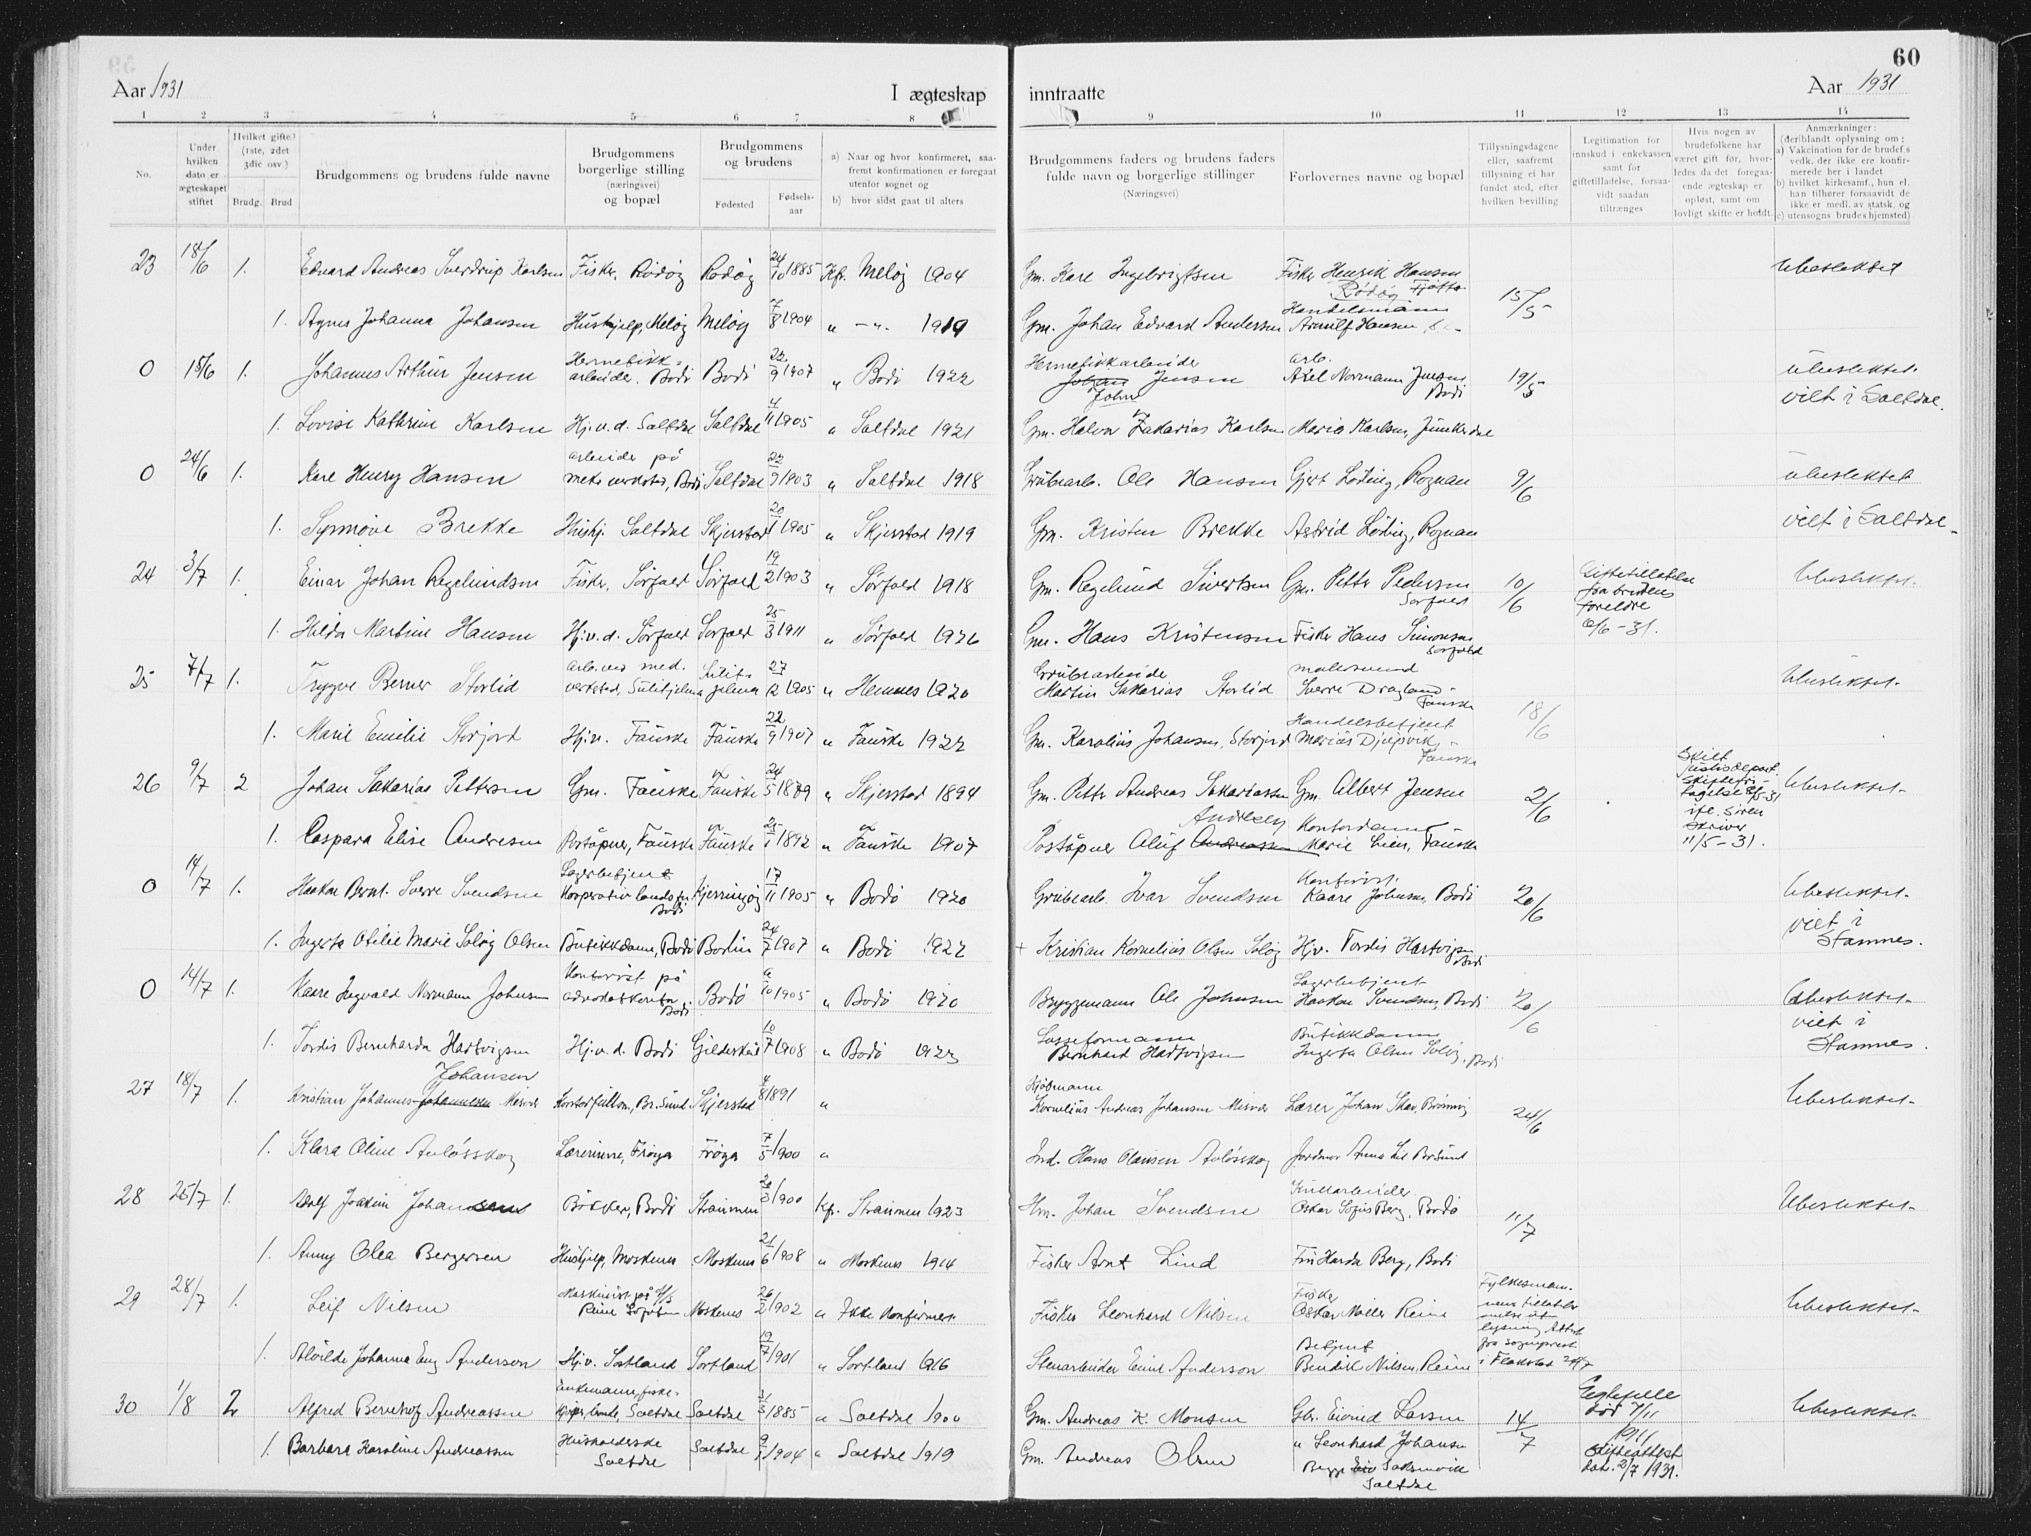 60
Aar 1931
I ægteskap inntraatte
Aar 1931
1 2 3 4 5 6 7 8 9 10 11 12 13 14
No.
Under hvilken dato er ægteskapet stiftet
Hvilket gifte? (1ste, 2det 3die osv.)
Brudg. Brud
Brudgommens og brudens fulde navne
Brudgommens borgerlige stilling (næringsvei) og bopæl
Brudgommens og brudens
Fødested
Fødsels-aar
a) Naar og hvor konfirmeret, saafremt konfirmationen er foregaat utenfor sognet og
b) hvor sidst gaat til alters
Brudgommens faders og brudens faders fulde navn og borgerlige stillinger (Næringsvei)
Forlovernes navne og bopæl
Tillysningsdagene eller, saafremt tillysning ei har fundet sted, efter hvilken bevilling
Legitimation for innskud i enkekassen samt for giftetilladelse, forsaavidt saadan tiltrænges
Hvis nogen av brudefolkene har været gift før, hvorledes da det foregaaende ægteskap er opløst, samt om lovligt skifte er holdt.
Anmærkninger: (deriblandt oplysning om:
a) Vakcination for de brudef.s vedk. der ikke ere konfirmerede her i landet
b) hvilket kirkesamf., hun el. han tilhører forsaavidt de ikke er medl. av statsk. og
c) utensogns brudes hjemsted)
23 18/6 1. Edvard Andreas Sverdrup Karlsen Fisker, Rødøy Rødøy 24/10 1885 Kf. Meløy 1904 Gm. Karl Ingebrigtsen Fisker Henrik Hansen Rødøy 15/5 Ubeslektet
1. Agnes Johanna Johansen Hushjelp, Meløy Meløy 7/8 1904 " - " - 1919 Gm. Johan Edvard Andersen Handelsmann Arnulf Hansen
0 15/6 1. Johannes Arthur Jensen Hermetikkarbeider, Bodø Bodø 22/9 1907 " Bodø 1922 Hermetikkarbeider Johan John Jensen Arb. Axel Normann Jensen Bodø 19/5 Ubeslektet. viet i Saltdal.
1. Lovise Kathrine Karlsen Hj.v.d. Saltdal Saltdal 4/11 1905 " Saltdal 1921 Gm. Halvor Zakarias Karlsen Marie Karlsen, Junkerdal
0 24/6 1. Kare Henry Hansen arbeider på mek. verksted, Bodø Saltdal 22/9 1903 " Saltdal 1918 Grubearb. Ole Hansen Gjert Løding, Rognan 9/6 Ubeslektet viet i Saltdal
1. Synnøve Brekke Hushj. Saltdal Skjerstad 20/1 1905 " Skjerstad 1919 Gm. Kristen Brekke Astrid Løding, Rognan
24 3/7 1. Einar Johan Regelindsen Fisker, Sørfold Sørfold 19/2 1903 " Sørfold 1918 Gm. Regelind Sivertsen Gm. Petter Pedersen Sørfold 10/6 Giftetillatelse fra brudens foreldre 6/6-31. Ubeslektet.
1. Hilda Martine Hansen Hj.v.d. Sørfold Sørfold 25/3 1911 " Sørfold 1926 Gm. Hans Kristensen Fisker Hans Simonsen Sørfold
25 7/7 1. Trygve Berner Storlid Arb. ved mek. verksted, Sulitjelma Sulitjelma 27/12 1905 " Hemnes 1920 Grubearbeider Martin Sakarias Storlid malersvend Sverre Dragland Fauske 18/6 Ubeslektet.
1. Marie Emilie Storjord Hj.v. Fauske Fauske 22/9 1907 " Fauske 1922 Gm. Karolius Johansen, Storjord Handelsbetjent Marius Djupvik, Fauske
26 9/7 2 Johan Sakarias Pettersen Gm. Fauske Fauske 24/5 1879 " Skjerstad 1894 Gm. Petter Andreas Sakariassen Gm. Albert Jensen 2/6 Skilt Justisdepart. 11/5-31. Ubeslektet.
1. Caspara Elise Andresen Poståpner, Fauske Fauske 25/1 1892 " Fauske 1907 Poståpner Oluf Andreassen Andresen Kontordame Marie Lien, Fauske
0 14/7 1. Haakon Bernt Sverre Svendsen Lagerbetjent Bodø Kjerringøy 17/11 1905 " Bodø 1920 Grubearb. Ivar Svendsen Kontorist Kaare Johnsen, Bodø 20/6 Ubeslektet. viet i Stamnes.
1. Ingerta Otilie Marie Soløy Olsen Butikkdame, Bodø Bodin 24/7 1907 " Bodø 1922 + Kristian Kornelius Olsen Soløy Hj.v. Tordis Hartvigsen Bodø
0 14/7 1. Kaare Ingvald Normann Johnsen Kontorist på advokatkontor Bodø Bodø 10 1905 " Bodø 1920 Bryggemann Ole Johnsen Lagerbetjent Haakon Svendsen, Bodø 20/6 Ubeslektet. viet i Stamnes.
1. Tordis Bernharda Hartvigsen Hj.v.d. Bodø Gildeskål 10/7 1908 " Bodø 1923 Losseformann Bernhard Hartvigsen Butikkdame Ingerta Olsen Soløy, Bodø
27 18/7 1. Kristian Johannes Johannesen Johansen Misvær Kontorfullm., Br.sund Skjerstad 4/8 1891 " Kjøbmann Kornelius Andreas Johansen Misvær Lærer Johan Skar Brønnøy 24/6 Ubeslektet.
1. Klara Oline Auløsskog Lærerinne, Frøya Frøya 7/5 1900 " Hans Olausen Auløsskog Jordmor Anna Lil Br.sund
28 25/7 1. Adolf Joakim Johansen Bøkker, Bodø Straumen 1900 Kf. Straumen 1923 Hm. Johan Svendsen Kullarbeider Oskar Sofus Berg, Bodø 11/7 Ubeslektet.
1. Anny Olea Bergersen Hushjelp, Moskenes Moskenes 21/6 1908 " Moskenes 1914 Fisker Arnt Lind Fru Harda Berg, Bodø
29 28/7 1. Leif Nilsen Maskinist på Reine Moskenes 26/2 1902 " Ikke konfirmert Fisker Leonhard Nilsen Fisker Oskar Møller Reine Fylkesmannens tillatelse Attest fra sogneprest i Flakstad 24/7 Ubeslektet.
1. Alvilde Johanna Eng Andersson Hj.v. Sortland Sortland 19/7 1901 " Sortland 1916 Stenarbeider Emil Andersson Betjent Bendik Nilsen, Reine
30 1/8 2 Alfred Bernhof Andreassen Enkemann, Saltdal Saltdal 1885 " Saltdal 1900 Gm. Andreas K. Monsen Gbr. Eivind Larsen 14/7 Ektefelle død 7/11 1911 Skifteattest dat. 2/7 1931. Ubeslektet.
1. Barbara Karoline Andreassen Husholderske Saltdal Saltdal 9/1 1904 " Saltdal 1919 Gm. Andreas Olsen " Leonhard Johansen Begge Saksenvik Saltdal